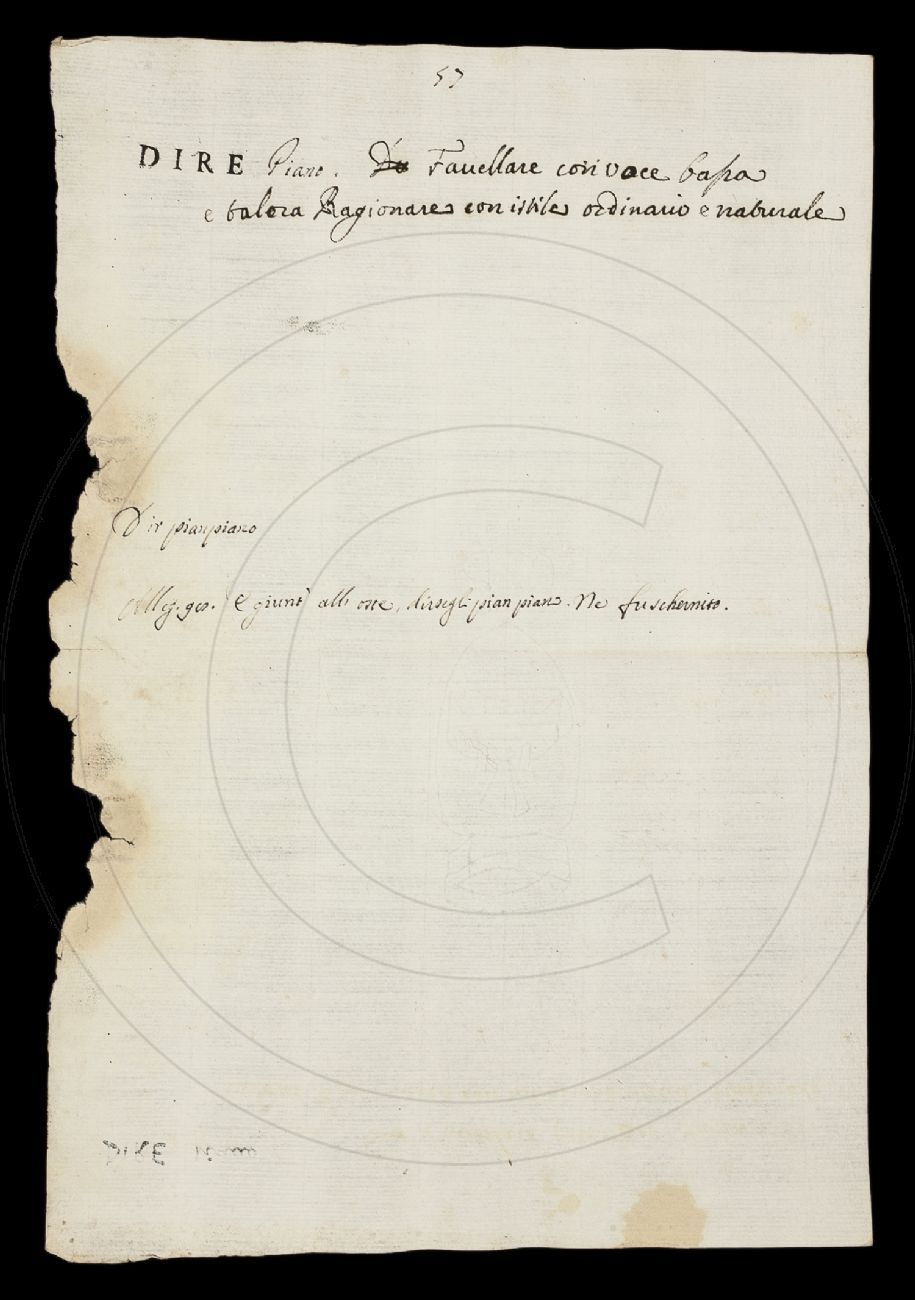 57
DIRE Piano. Favellare con voce bassa
e talora Ragionare con istile ordinario e naturale
Dir pianpiano
Alleg. 920. E giunt' all' oste, dirsegli pian pian. Ne fu schernito.
DIRE